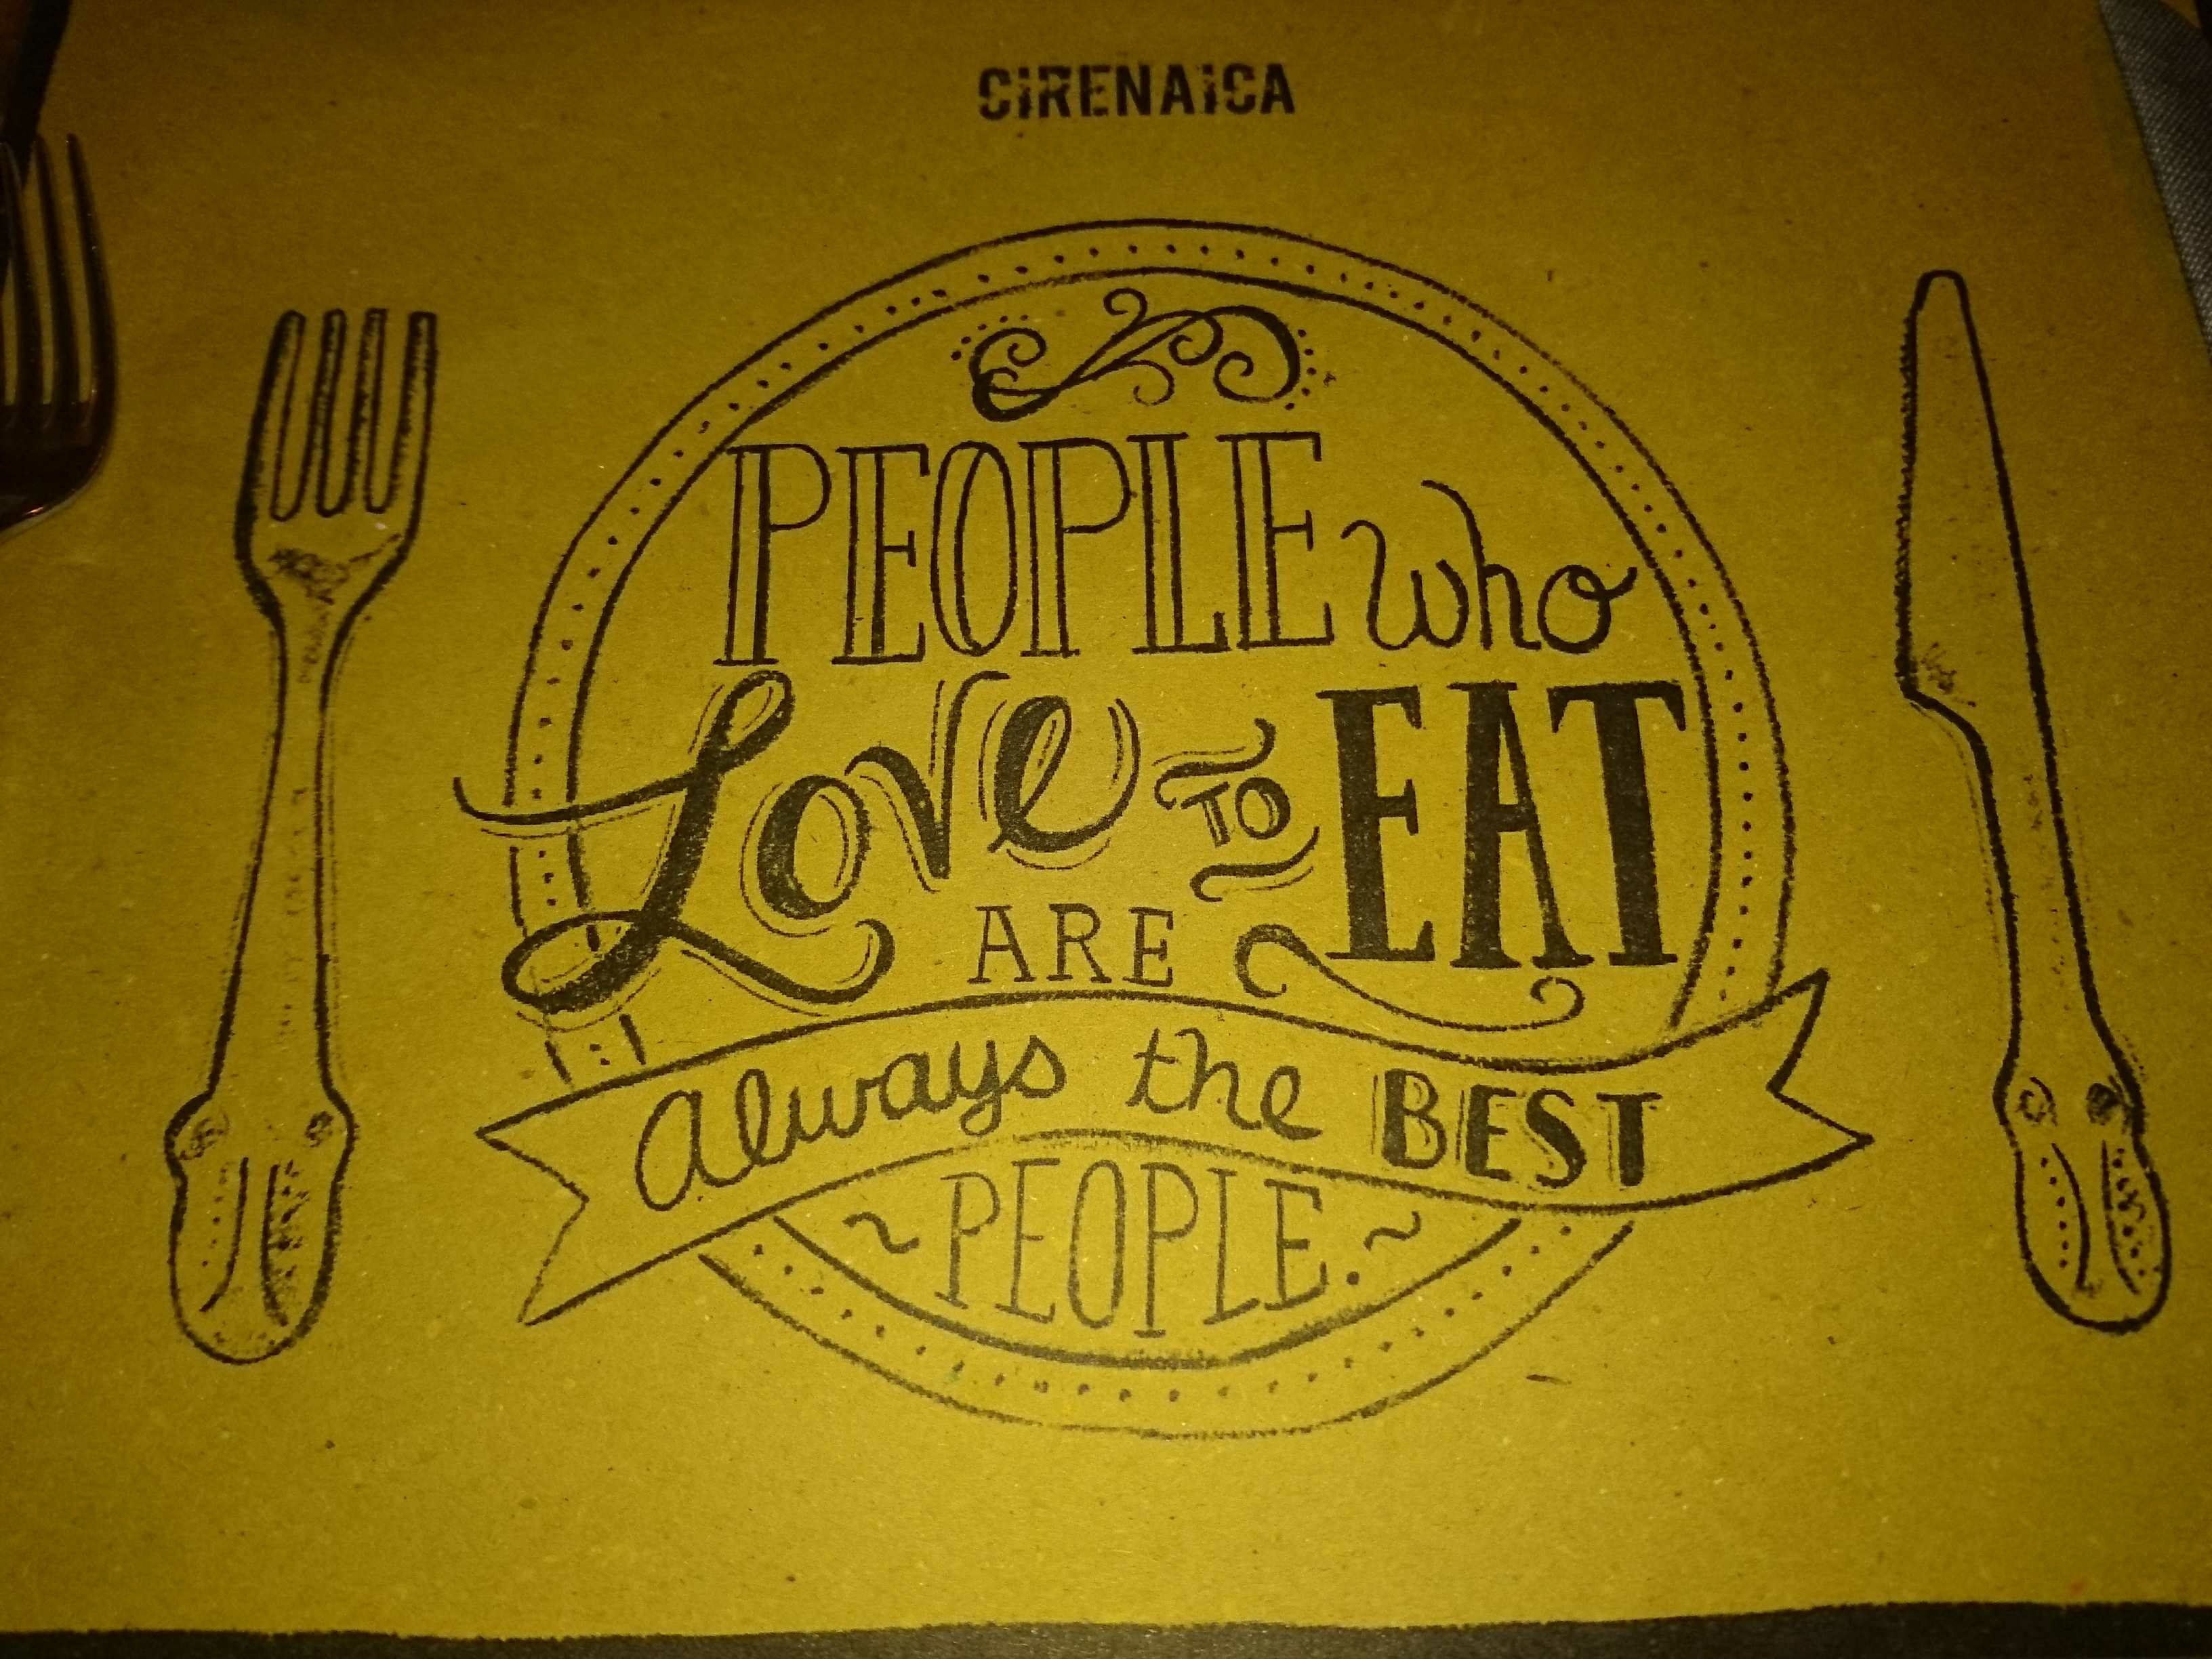 CIRENAICA
PEOPLE who
Love TO EAT
ARE
always the BEST
~PEOPLE.~